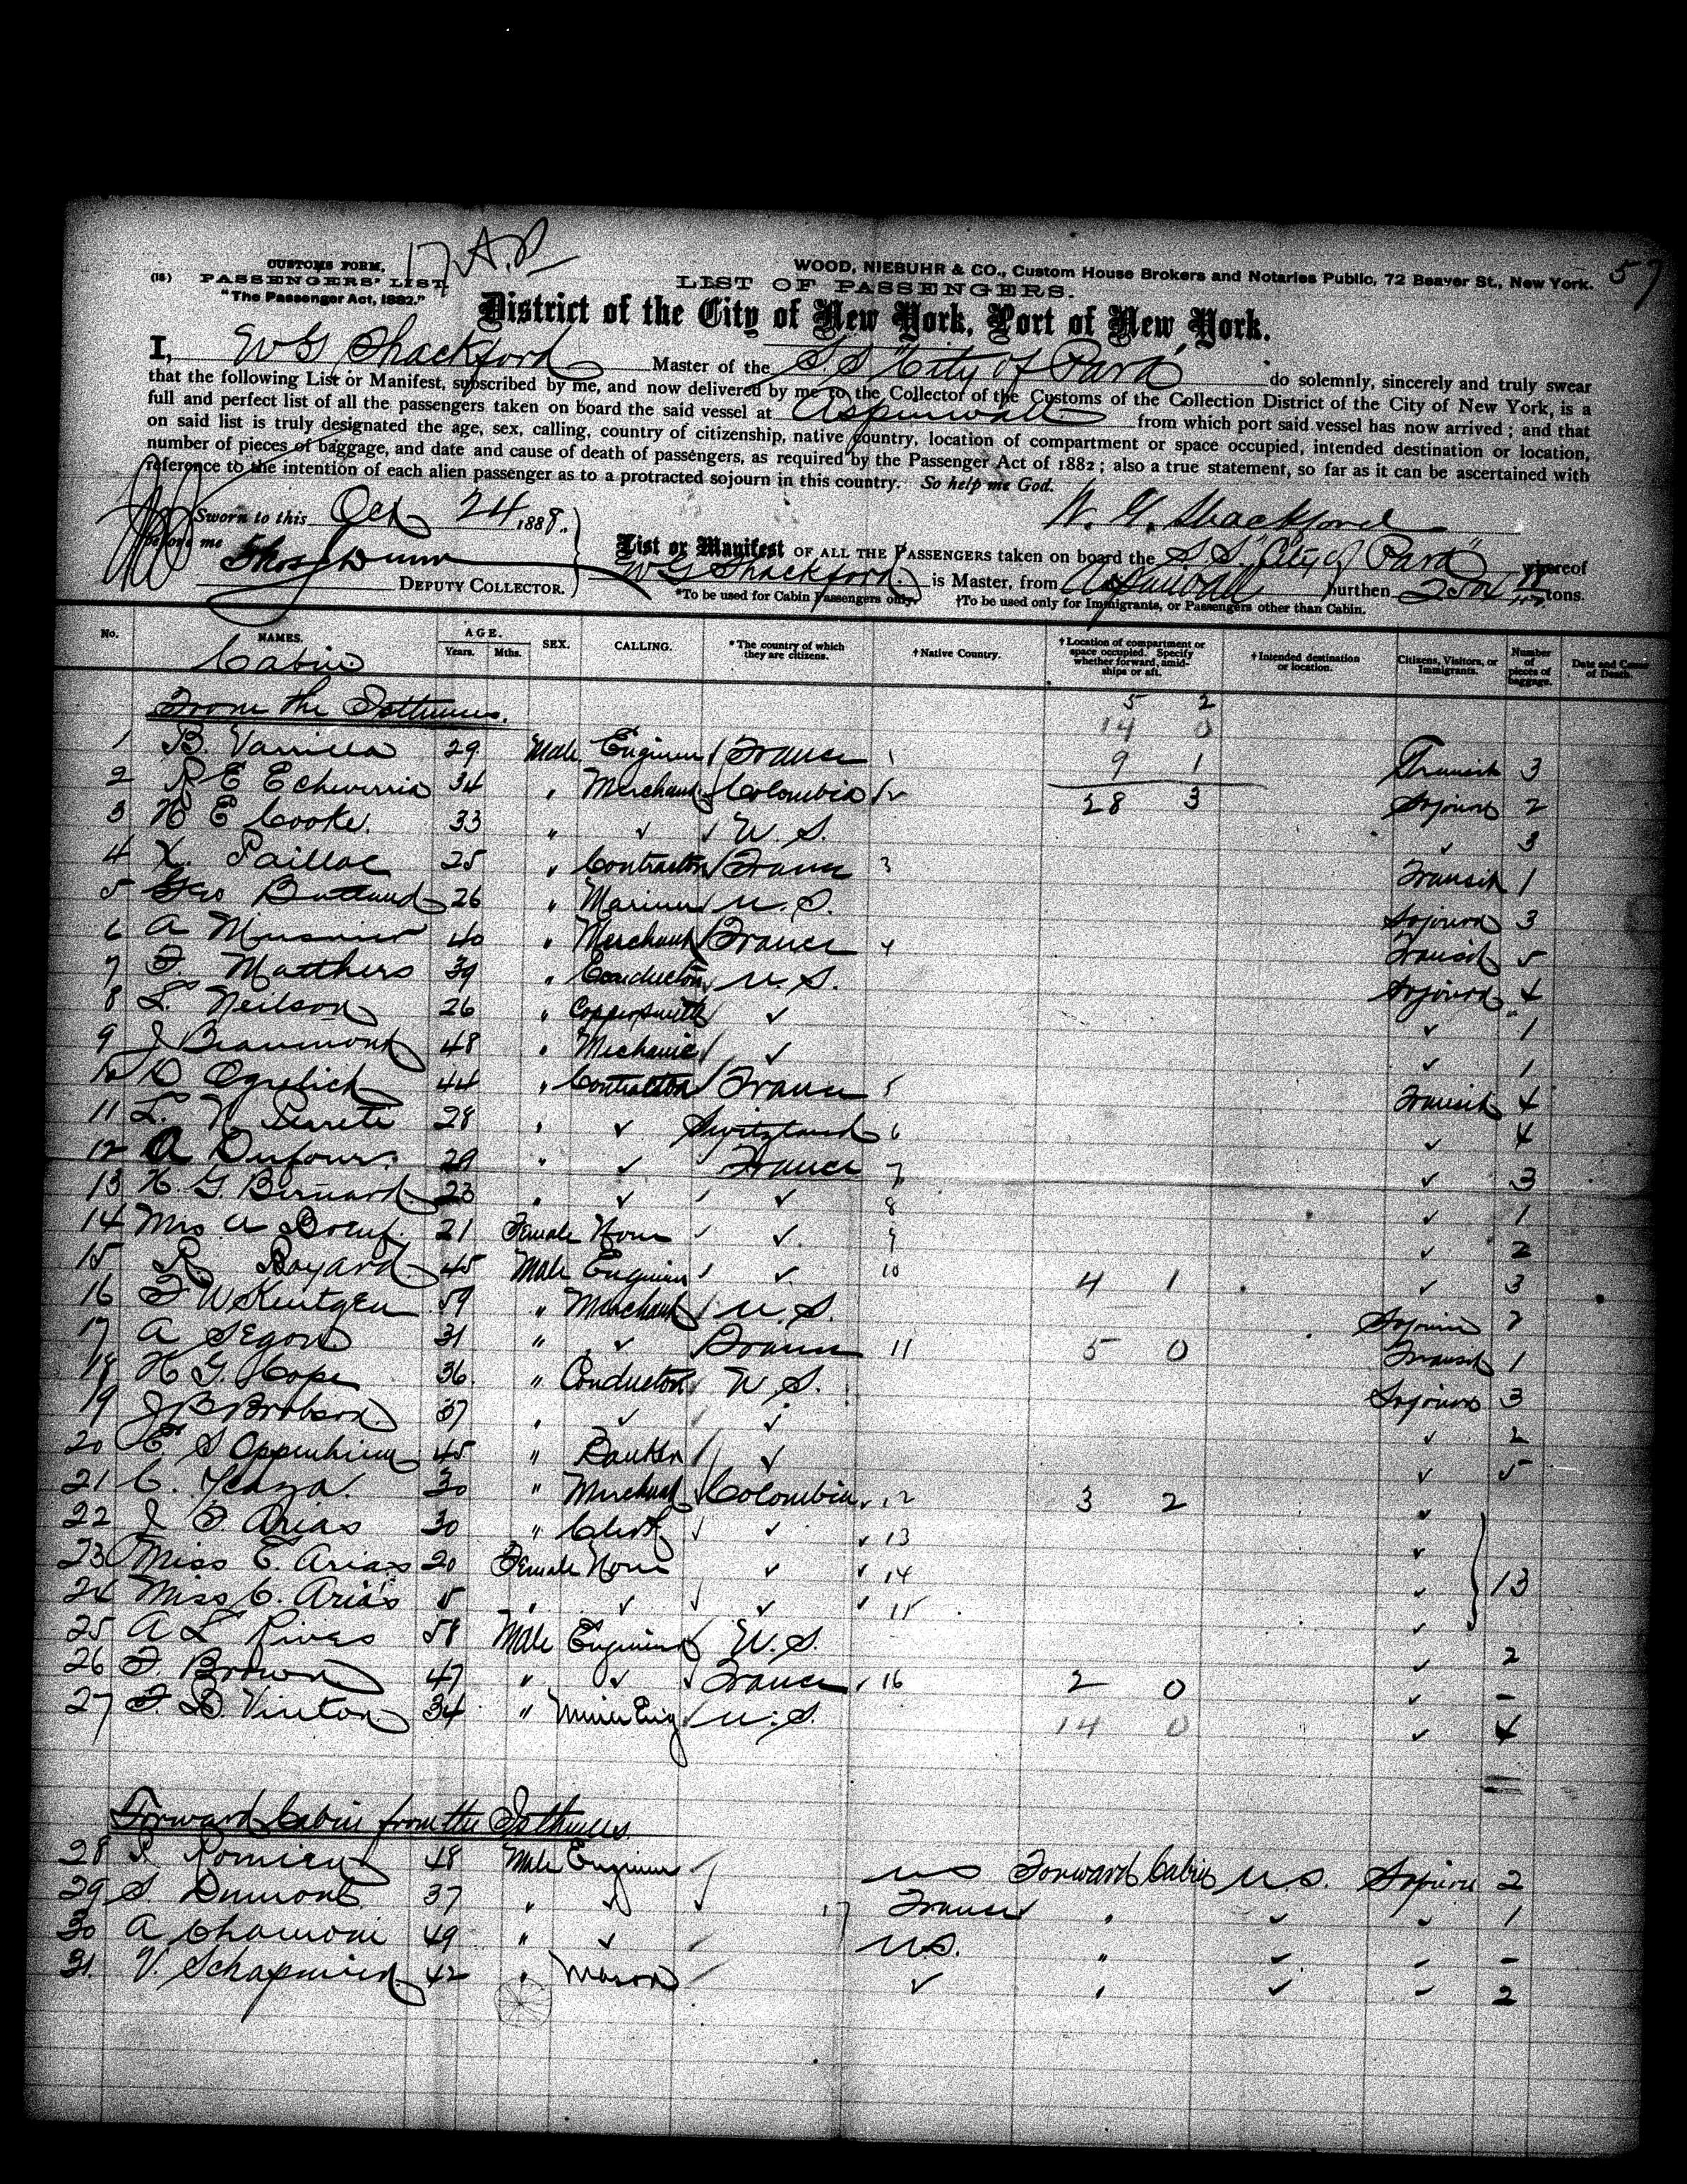 57
17 A.P
CUSTOMS FORM,
(18) PASSENGERS' LIST,
"The Passenger Act, 1882."
WOOD, NIEBUHR & CO., Custom House Brokers and Notaries Public, 72 Beaver St., New York.
LIST OF PASSENGERS.
District of the City of New York, Port of New York.
I, W G Shackford Master of the S S "City of Para" do solemnly, sincerely and truly swear
that the following List or Manifest, subscribed by me, and now delivered by me to the Collector of the Customs of the Collection District of the City of New York, is a
full and perfect list of all the passengers taken on board the said vessel at Aspinwall from which port said vessel has now arrived; and that
on said list is truly designated the age, sex, calling, country of citizenship, native country, location of compartment or space occupied, intended destination or location,
number of pieces of baggage, and date and cause of death of passengers, as required by the Passenger Act of 1882; also a true statement, so far as it can be ascertained with
reference to the intention of each alien passenger as to a protracted sojourn in this country. So help me God.
Sworn to this Oct 24 1888.
W. G. Shackford
before me Thos J Dunn
DEPUTY COLLECTOR.
List or Manifest OF ALL THE PASSENGERS taken on board the S S "City of Para" whereof
W G Shackford is Master, from Aspinwall burthen tons.
*To be used for Cabin Passengers only. †To be used only for Immigrants, or Passengers other than Cabin.
No. NAMES. AGE. Years. Mths. SEX. CALLING. *The country of which they are citizens. †Native Country. †Location of compartment or space occupied. Specify whether forward, amidships or aft. †Intended destination or location. Citizens, Visitors, or Immigrants. Number of pieces of baggage. Date and Cause of Death.
Cabin
From the Isthmus. 5 2
14 0
1 B. Varrilla 29 Male Engineer France 1 9 1 Transit 3
2 R E Echeverria 34 " Merchant Colombia 2 28 3 Sojourn 2
3 H E Cooke. 33 " ✓ U. S. ✓ 3
4 X. Paillac 25 " Contractor France 3 Transit 1
5 Geo Butland 26 " Mariner U. S. Sojourn 3
6 A 40 " Merchant France 4 Transit 5
7 F Matthers 39 " Conductor U. S. Sojourn 4
8 L Neilson 26 " Coppersmith ✓ ✓ 1
9 J Beaumont 48 " Mechanic ✓ ✓ 1
10 D Ogrelich 44 " Contractor France 5 Transit 4
11 L. N. 28 " ✓ Switzerland 6 ✓ 4
12 A Dufour. 29 " ✓ France 7 ✓ 3
13 H. G. Bernard 23 " ✓ ✓ 8 ✓ 1
14 Mrs A Boeuf. 21 Female None ✓ 9 ✓ 2
15 R Bayard 45 Male Engineer ✓ 10 4 1 ✓ 3
16 F W Kentgen 59 " Merchant U. S. Sojourn 2
17 A Segon 31 " ✓ France 11 5 0 Transit 1
18 H G. Cope 36. " Conductor U. S. Sojourn 3
19 J B Brobson 37 " ✓ ✓ ✓ 2
20 E S Oppenheim 45 " Banker ✓ ✓ 5
21 C. Ycaza. 30 " Merchant Colombia 12 3 2 ✓
22 J F. Arias 30 " Clerk ✓ 13 ✓
23 Miss E. Arias 20 Female None ✓ 14 ✓ 13
24 Miss C. Arias 5 " ✓ ✓ 15 ✓
25 A L Rives 58 Male Engineer U. S. ✓ 2
26 F. Brown 47 " ✓ France 16 2 0 ✓ -
27 F. B. Vinton 34 " Min Eng U. S. 14 0 ✓ 4
Forward Cabin from the Isthmus.
28 P. Romieu 48 Male Engineer U S Forward Cabin U. S. Sojourn 2
29 S. Dumont 37 " ✓ 17 France " ✓ ✓ 1
30 A Chamoni 49 " ✓ U. S. " ✓ ✓ -
31. V. 42 " Mason ✓ " ✓ ✓ 2